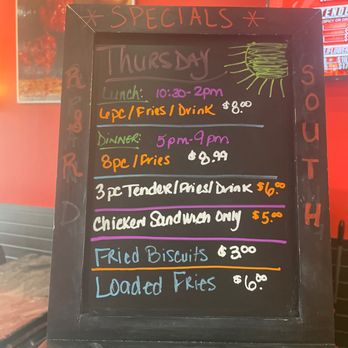 * SPECIALS *
THURSDAY
LUNCH: 10:30-2pm
6pc/Fries/Drink $8.00
DINNER: 5pm-9pm
8pc/Fries $8.99
3pc Tender/Fries/Drink $6.00
Chicken Sandwich Only $5.00
Fried Biscuits $3.00
Loaded Fries $6.00
SOUTH